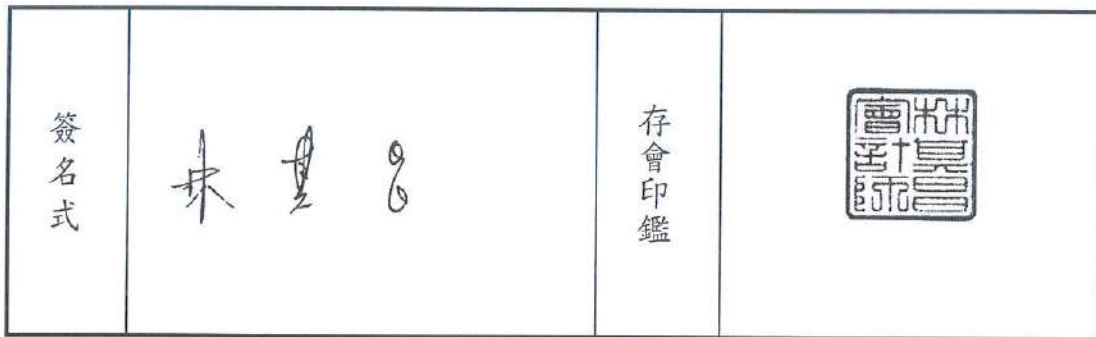 簽名式
林其昌
存會印鑑
林其昌
會計師